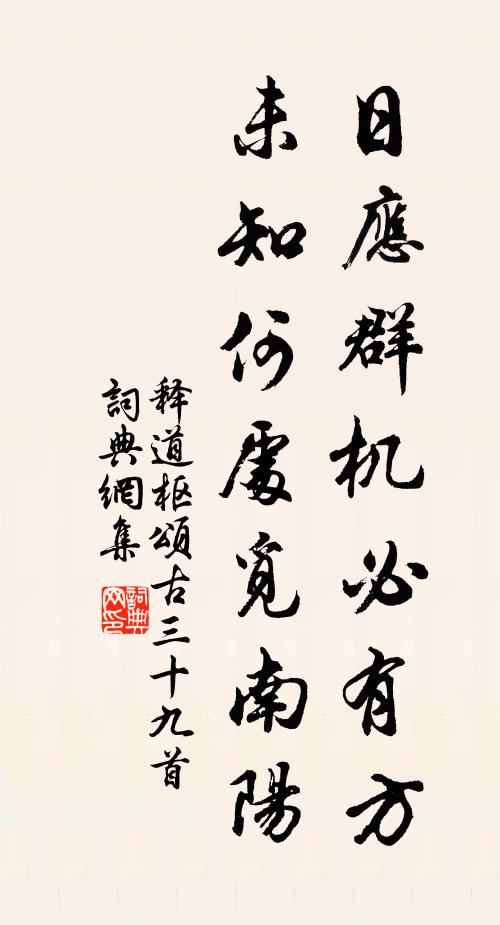 日應群机必有方
未知何處覓南陽
释道枢頌古三十九首
詞典網集
詞典网印